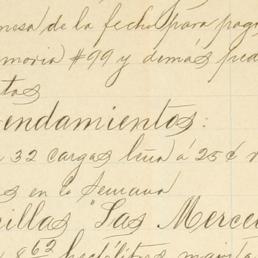 mesa de la fecha para pag
moria #99 y demás ped
tas
endamientos:
32 cargas leña á 25¢
en la semana
illas "Las Merce
862 hectólitros